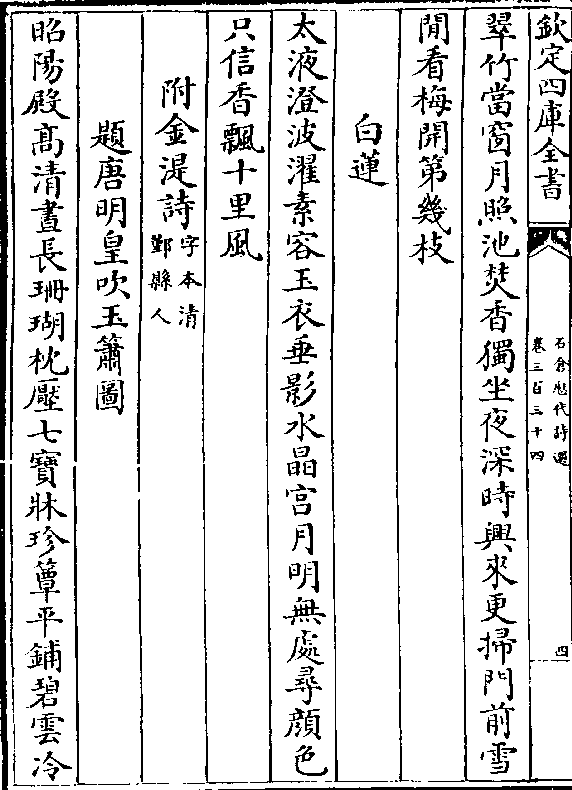 欽定四庫全書
石倉歷代詩選
卷三百三十四
四
翠竹當窗月照池焚香獨坐夜深時興來更掃門前雪
閒看梅開第幾枝
白蓮
太液澄波濯素容玉衣垂影水晶宫月明無處尋顔色
只信香飄十里風
附金湜詩字本清
鄞縣人
題唐明皇吹玉簫圖
昭陽殿高清晝長珊瑚枕壓七寶牀珍簟平鋪碧雲冷